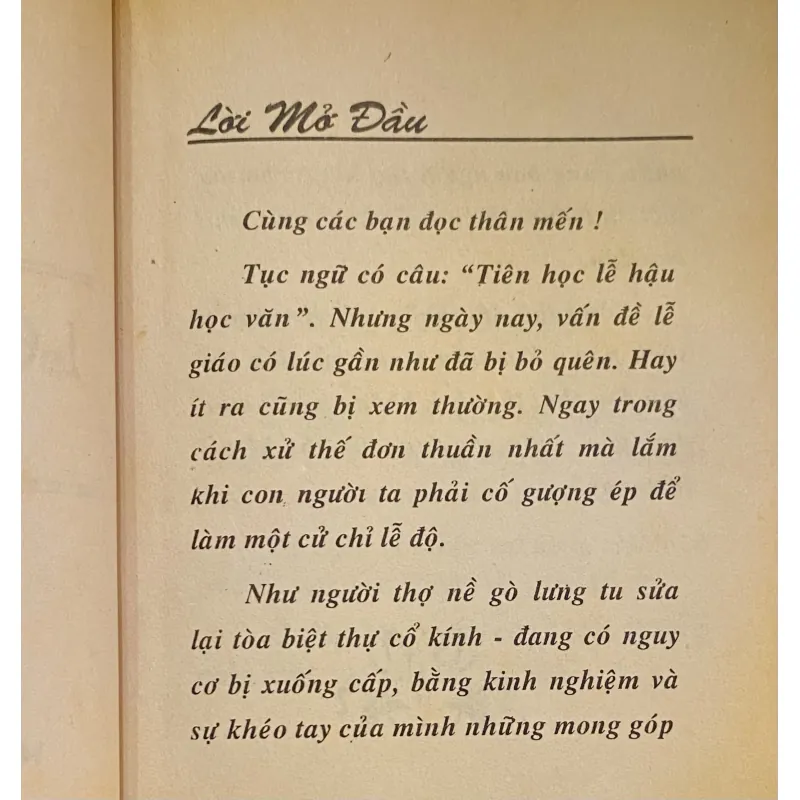 Lời Mở Đầu
Cùng các bạn đọc thân mến !
Tục ngữ có câu: “Tiên học lễ hậu
học văn”. Nhưng ngày nay, vấn đề lễ
giáo có lúc gần như đã bị bỏ quên. Hay
ít ra cũng bị xem thường. Ngay trong
cách xử thế đơn thuần nhất mà lắm
khi con người ta phải cố gượng ép để
làm một cử chỉ lễ độ.
Như người thợ nề gò lưng tu sửa
lại tòa biệt thự cổ kính - đang có nguy
cơ bị xuống cấp, bằng kinh nghiệm và
sự khéo tay của mình những mong góp